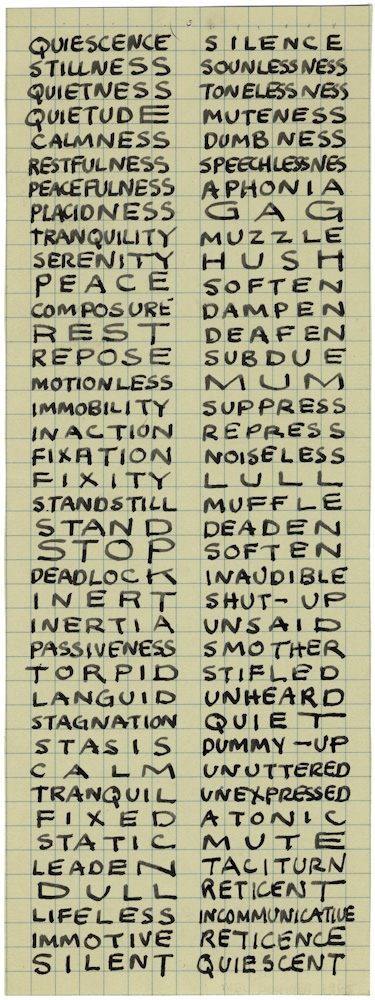 QUIESCENCE
STILLNESS
QUIETNESS
QUIETUDE
CALMNESS
RESTFULNESS
PEACEFULNESS
PLACIDNESS
TRANQUILITY
SERENITY
PEACE
COMPOSURE
REST
REPOSE
MOTIONLESS
IMMOBILITY
INACTION
FIXATION
FIXITY
STANDSTILL
STAND
STOP
DEADLOCK
INERT
INERTIA
PASSIVENESS
TORPID
LANGUID
STAGNATION
STASIS
CALM
TRANQUIL
FIXED
STATIC
LEADEN
DULL
LIFELESS
IMMOTIVE
SILENT
SILENCE
SOUNLESSNESS
TONELESSNESS
MUTENESS
DUMBNESS
SPEECHLESSNES
APHONIA
GAG
MUZZLE
HUSH
SOFTEN
DAMPEN
DEAFEN
SUBDUE
MUM
SUPPRESS
REPRESS
NOISELESS
LULL
MUFFLE
DEADEN
SOFTEN
INAUDIBLE
SHUT-UP
UNSAID
SMOTHER
STIFLED
UNHEARD
QUIET
DUMMY-UP
UNUTTERED
UNEXPRESSED
ATONIC
MUTE
TACITURN
RETICENT
INCOMMUNICATIVE
RETICENCE
QUIESCENT